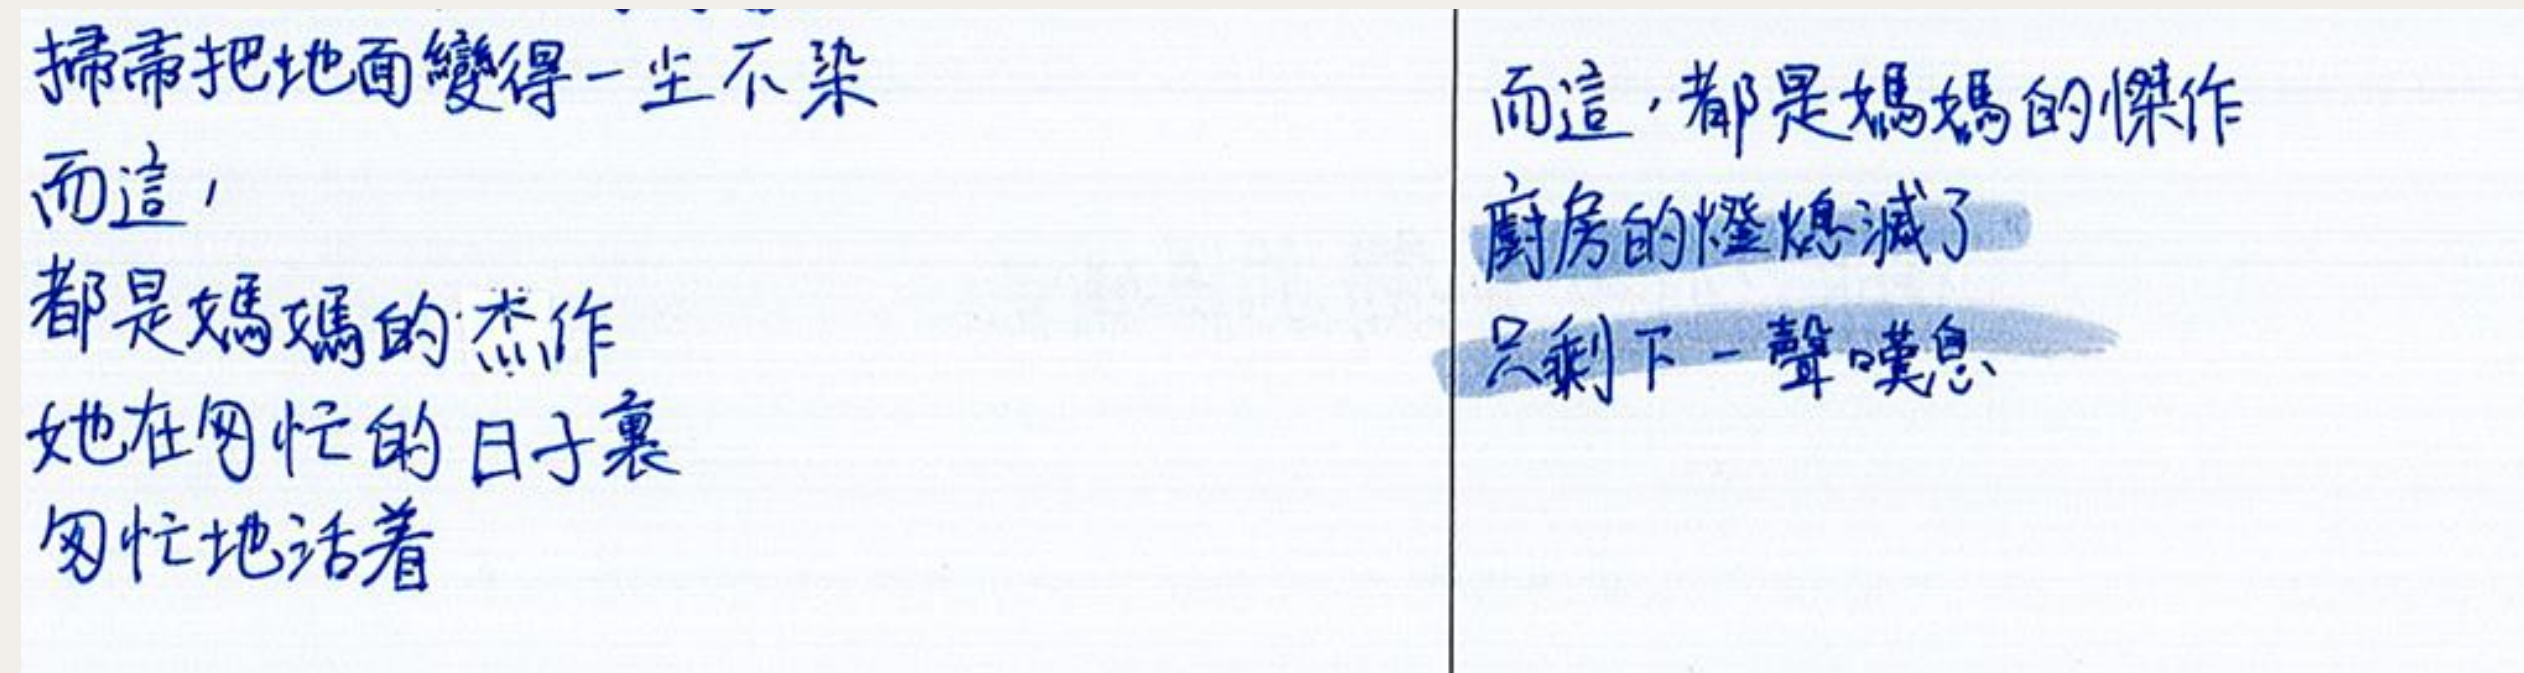 掃帚把地面變得一尘不染
而這，
都是媽媽的杰作
她在匆忙的日子裏
匆忙地活着
而這，都是媽媽的傑作
廚房的燈熄滅了
只剩下一聲嘆息